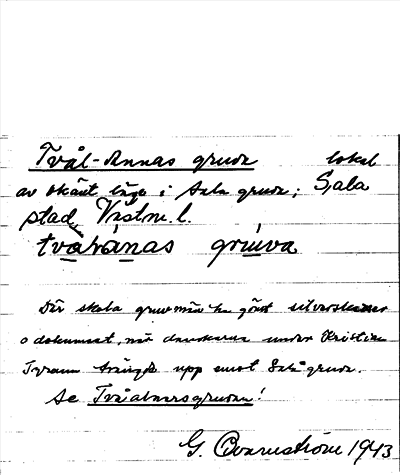 Tvål-Annas gruva lokal
av okänt läge i Sala gruva; Sala
stad, Västm. l.
tvåḷánas grúva
Där skola gruvmän ha gjort silverskatter
odokument, när danskarna under Kristian
Tyrann trängde upp mot Sala gruva.
Se !
G. Qvarnström 1943